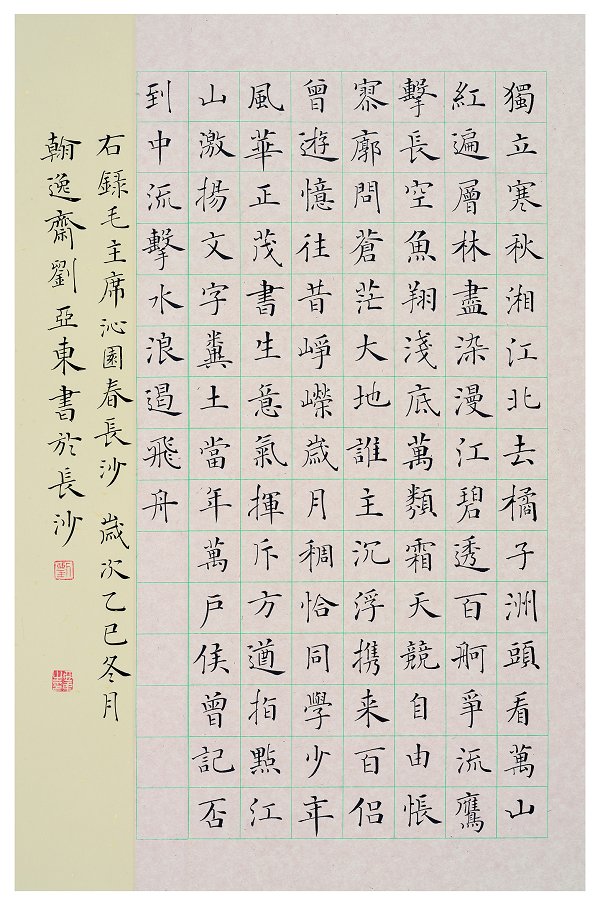 獨立寒秋湘江北去橘子洲頭看萬山
紅遍層林盡染漫江碧透百舸爭流鷹
擊長空魚翔淺底萬類霜天競自由悵
寥廓問蒼茫大地誰主沉浮携来百侶
曾遊憶往昔崢嶸歲月稠恰同學少年
風華正茂書生意氣揮斥方遒指點江
山激揚文字糞土當年萬戶侯曾記否
到中流擊水浪遏飛舟
右錄毛主席沁園春長沙 歲次乙巳冬月
翰逸齋劉亞東書於長沙
劉